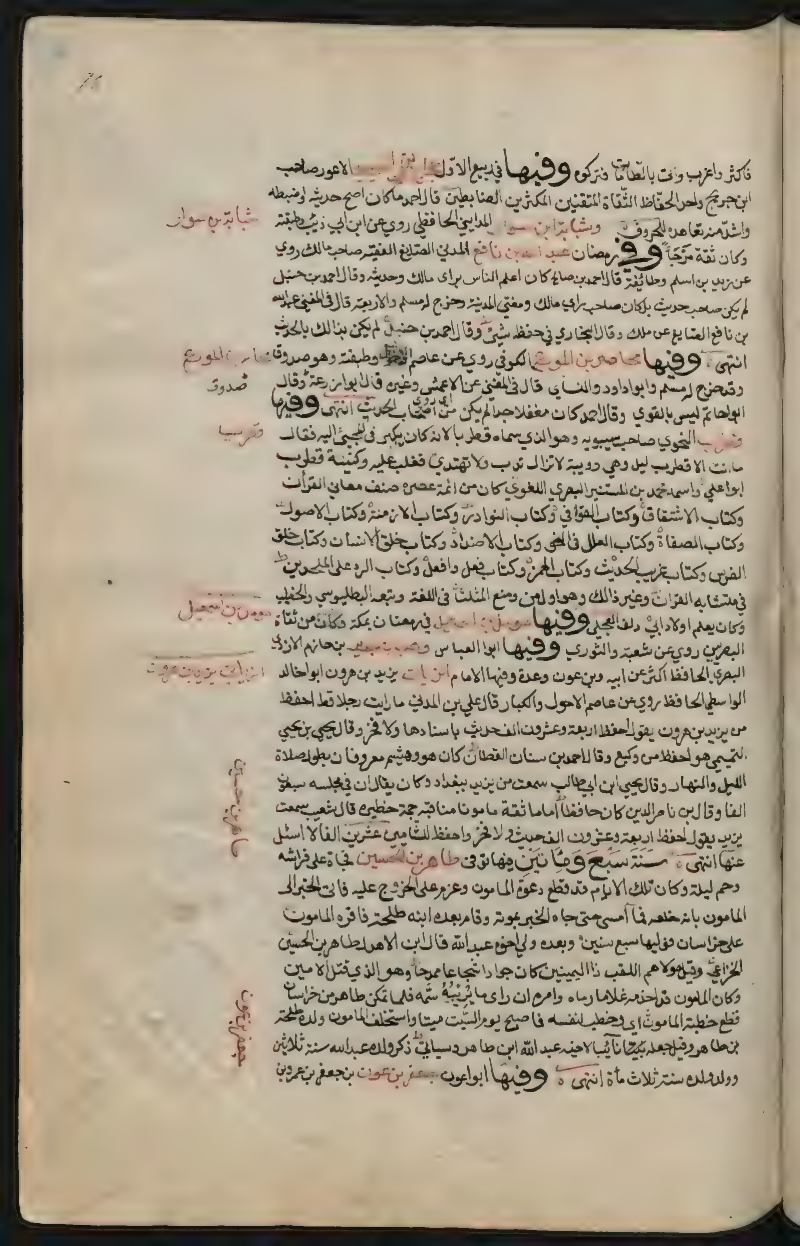 فاكثر واغرب واتى بالطامات فتركوه وفيها في ربيع الاول الاعور صاحب
ابن جريج واحد الحفاظ الثقاة المتقنين المكثرين الضابطين قال احمد ما كان اصح حديثه واضبطه
واشد منه تعاهده للحروف وشبابة ابن سوار المدايني الحافظ روى عن ابن ابي ذئب وطبقته
وكان ثقة مرجئا وفي رمضان عبد الله بن نافع المدني الصائغ الفقيه صاحب مالك روى
عن زيد بن اسلم وطائفة قال احمد بن صالح كان اعلم الناس براى مالك وحديثه وقال احمد بن حنبل
لم يكن صاحب حديث بل كان صاحب راى مالك ومفتي المدينة وخرج له مسلم والاربعة قال في المغني عبد الله
بن نافع الصايغ عن ملك وقال البخاري في حفظه شيئ وقال احمد بن حنبل لم يكن بذالك بالحديث
انتهى وفيها محاضر بن المورع الكوفي روى عن عاصم الاحول وطبقته وهو صدوق
وقد خرج له مسلم وابو داود والنسائي قال في المغني عن الاعمش وغيره قال ابو زرعة صدوق وقال
ابو حاتم ليس بالقوي وقال احمد كان مغفلا جدا لم يكن من اصحاب الحديث انتهى وفيها
قطرب النحوي صاحب سيبويه وهو الذي سماه قطربا لانه كان يبكر في المجيئ اليه فقال
ما انت الا قطرب ليل وهي دويبة لا تزال تدب ولا تهتدي فغلب عليه وكنيته قطرب
ابو علي واسمه محمد بن المستنير البصري اللغوي كان من ائمة عصره صنف معاني القرآن
وكتاب الاشتقاق وكتاب القوافي وكتاب النوادر وكتاب الازمنة وكتاب الاصول
وكتاب الصفاة وكتاب العلل في النحو وكتاب الاضداد وكتاب خلق الانسان وكتاب خلق
الفرس وكتاب غريب الحديث وكتاب الهمز وكتاب فعل وافعل وكتاب الرد على الملحدين
في متشابه القرآن وغير ذالك وهو اول من وضع المثلث في اللغة وتبعه البطليوسي والخطيب
وكان يعلم اولاد ابي دلف العجلي وفيها مؤمل بن اسمعيل في رمضان بمكة وكان من ثقاة
البصريين روى عن شعبة والثوري وفيها ابو العباس وهب بن جرير بن حازم الازدي
البصري الحافظ اكثر عن ابيه وابن عون وعدة وفيها الامام يزيد بن هرون ابو خالد
الواسطي الحافظ روى عن عاصم الاحول والكبار قال علي بن المديني ما رايت رجلا قط احفظ
من يزيد بن هرون يقول احفظ اربعة وعشرون الف حديث باسنادها ولا فخر وقال يحيى بن يحيى
التميمي هو احفظ من وكيع وقال احمد بن سنان القطان كان هو وهشيم معروفان بطول صلاة
الليل والنهار وقال يحيى ابن ابي طالب سمعت من يزيد ببغداد وكان يقال ان في مجلسه سبعون
الفا وقال بن ناصر الدين كان حافظا اماما ثقة مامونا مناقبه جمة خطيرة قال شعيب سمعت
يزيد يقول احفظ اربعة وعشرون الف حديث ولا فخر واحفظ للشاميين عشرين الفا لا اسئل
عنها انتهى سنة سبع ومائتين فيها توفي طاهر بن الحسين فجاة على فراشه
وحم ليلة وكان تلك الايام قد قطع دعوة المامون وعزم على الخروج عليه فاتى الخبر الى
المامون بانه خلعه فما امسى حتى جاء الخبر بموته وقام بعده ابنه طلحة فاقره المامون
على خراسان فوليها سبع سنين وبعده ولي اخوه عبد الله قال ابن الاهدل طاهر بن الحسين
الخزاعي وقيل مولاهم اللقب ذا اليمينين كان جوادا شجاعا ممدحا وهو الذي قتل الامين
وكان المامون قد اخدمه غلاما رباه وامره ان راى ما يريبه سمه فلما تمكن طاهر من خراسان
قطع خطبة المامون اي وخطب لنفسه فاصبح يوم السبت ميتا واستخلف المامون ولده طلحة
بن طاهر وقيل جعله نائبا لاخيه عبد الله ابن طاهر وسياتي ذكر ولده عبد الله سنة ثلاثين
وولد ولده سنة ثلاث ماة انتهى وفيها ابو عون جعفر بن عون بن جعفر بن عمرو بن
شبابة بن سوار
صدوق
مؤمل بن اسمعيل
طاهر بن حسين
جعفر بن عون